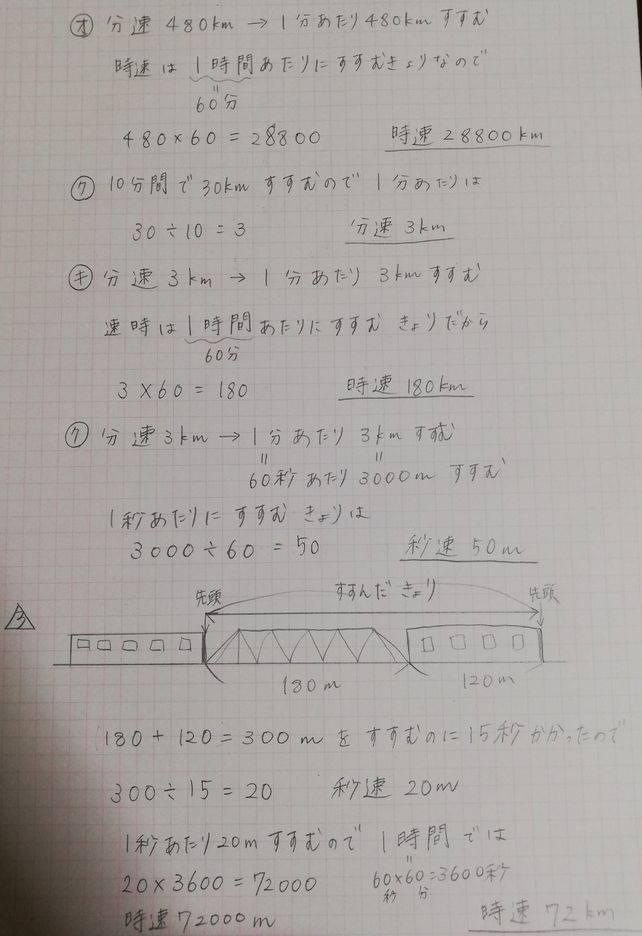 ㋔ 分速480km → 1分あたり480kmすすむ
時速は1時間あたりにすすむきょりなので
60分
480×60=28800 時速28800km
㋗ 10分間で30kmすすむので1分あたりは
30÷10=3 分速3km
㋖ 分速3km → 1分あたり3kmすすむ
速時は1時間あたりにすすむきょりだから
60分
3×60=180 時速180km
㋗ 分速3km → 1分あたり3kmすすむ
60秒あたり3000mすすむ
1秒あたりにすすむきょりは
3000÷60=50 秒速50m
3
先頭 すすんだきょり 先頭
180m 120m
180+120=300mをすすむのに15秒かかったので
300÷15=20 秒速20m
1秒あたり20mすすむので1時間では
20×3600=72000 60×60=3600秒
秒 分
時速72000m 時速72km